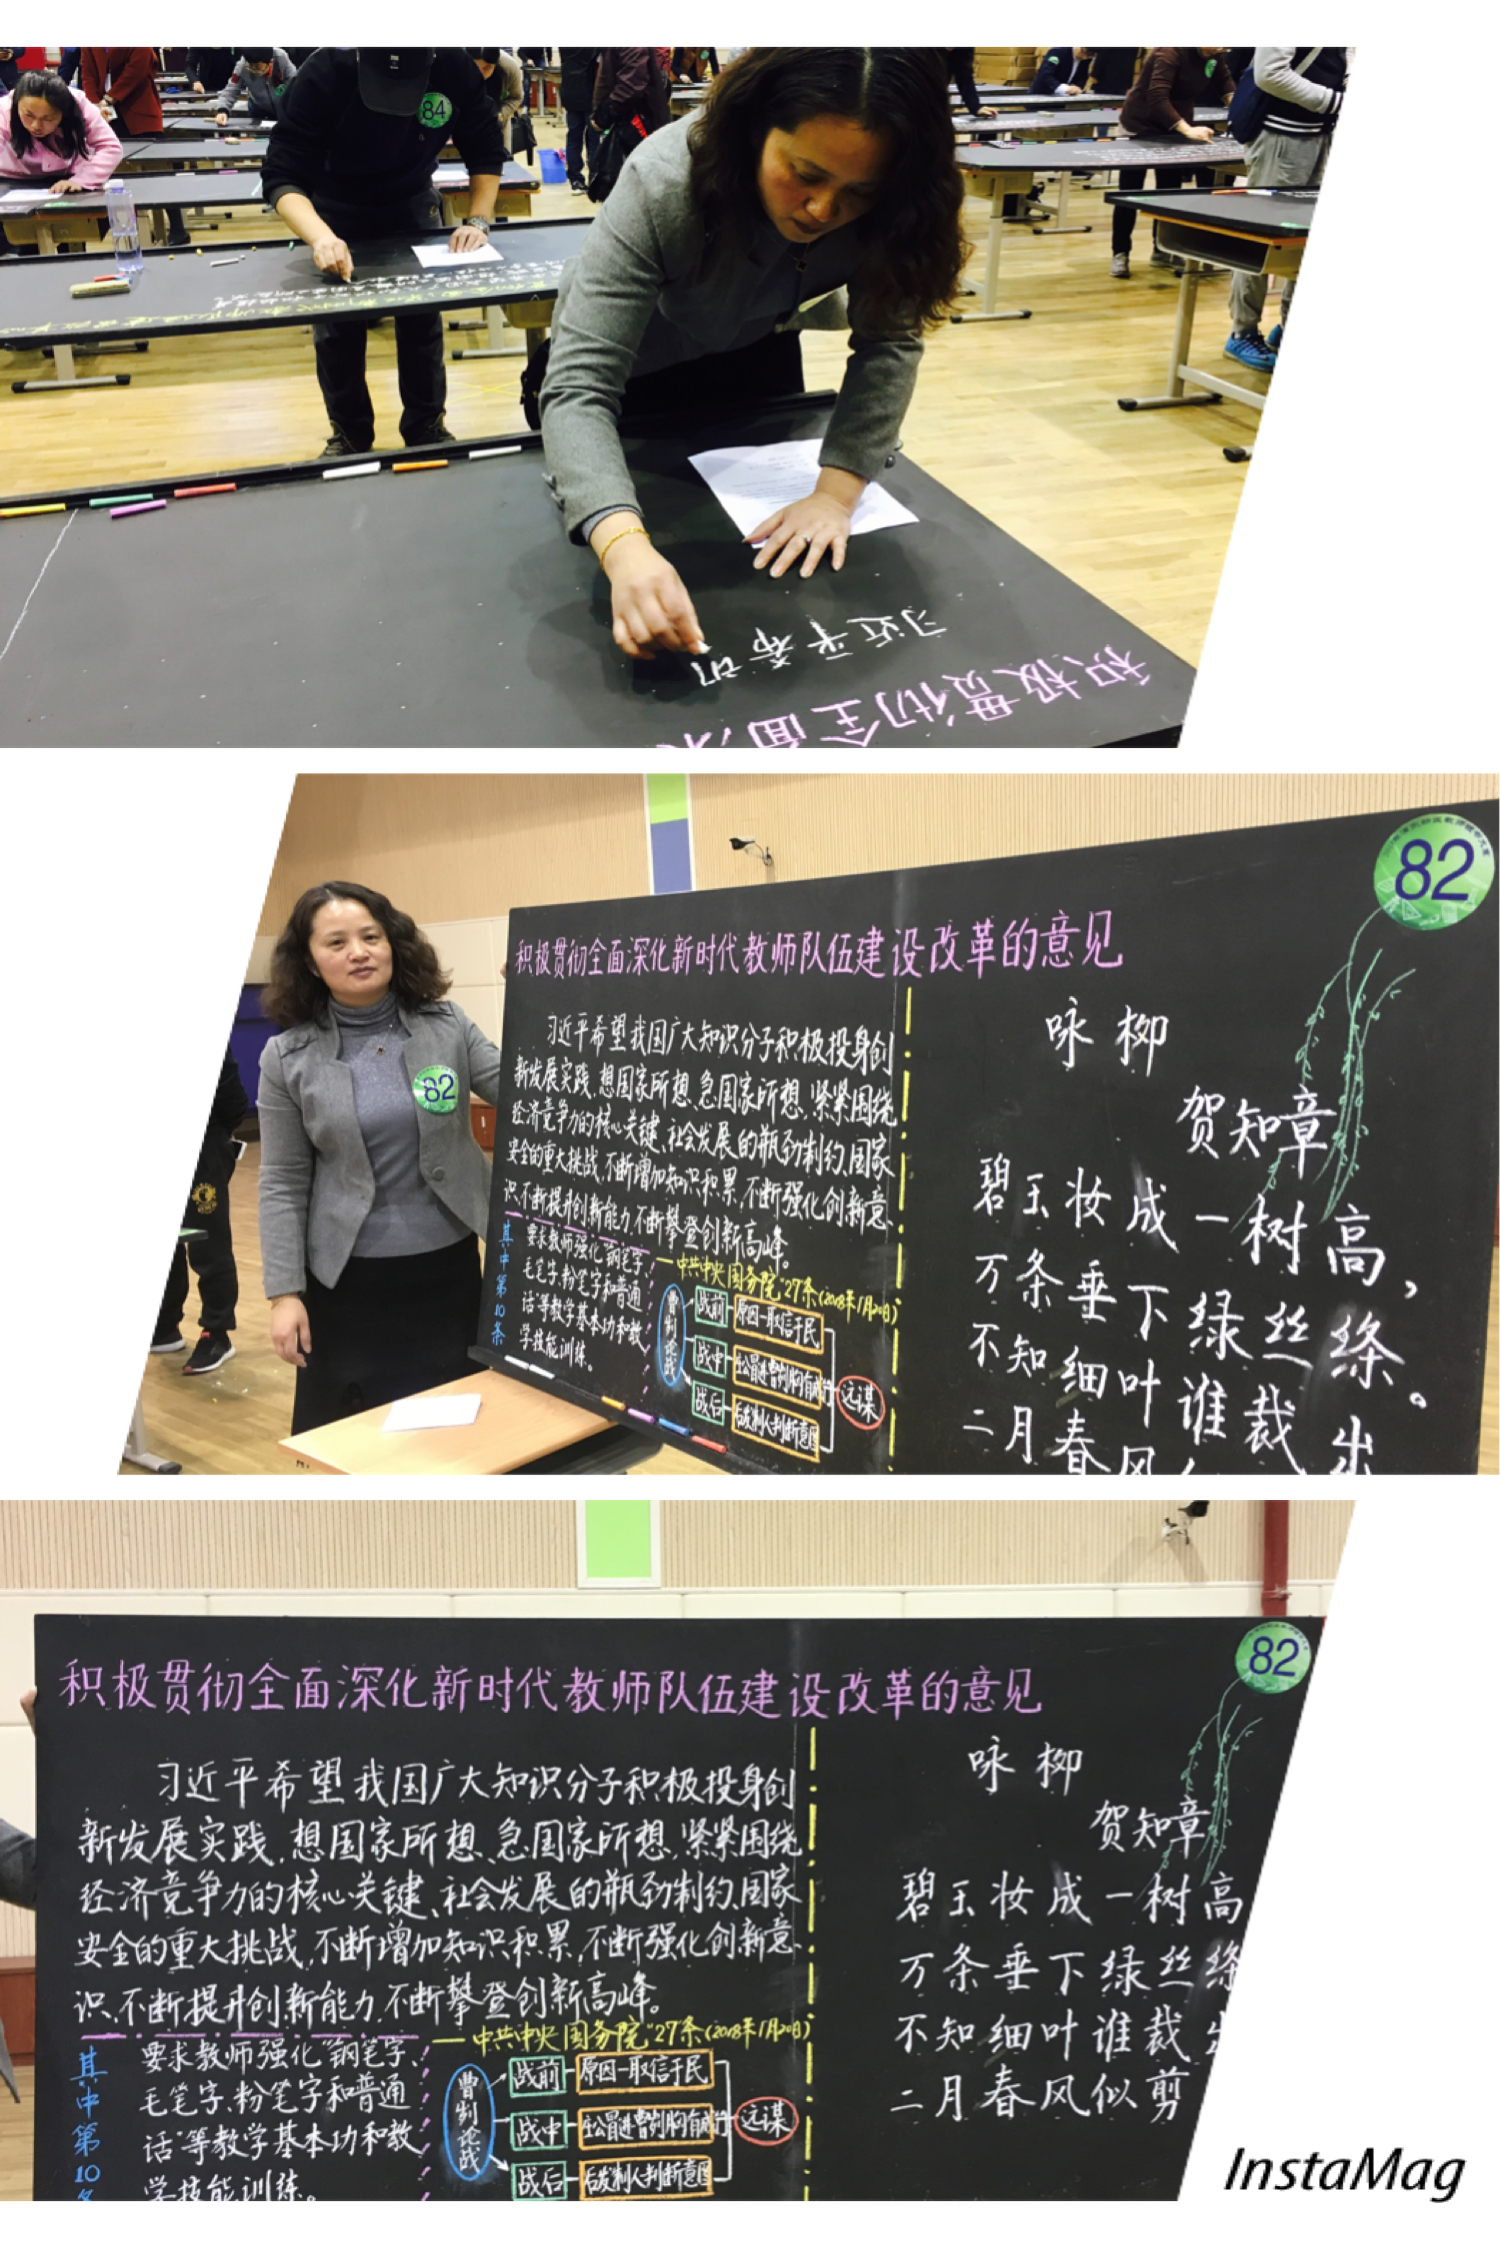 84
习近平希
积极贯彻全面深
82
积极贯彻全面深化新时代教师队伍建设改革的意见
习近平希望我国广大知识分子积极投身创
新发展实践,想国家所想、急国家所想,紧紧围绕
经济竞争力的核心关键、社会发展的瓶劲制约、国家
安全的重大挑战,不断增加知识积累,不断强化创新意
识,不断提升创新能力,不断攀登创新高峰。
——中共中央国务院"27条(2018年1月20日)
其中第10条
要求教师强化"钢笔字、
毛笔字、粉笔字和普通
话"等教学基本功和教
学技能训练。
曹刿论战
战前
原因—取信于民
战中
战后
远谋
咏柳
贺知章
碧玉妆成一树高,
万条垂下绿丝绦。
不知细叶谁裁出
二月春风
82
82
积极贯彻全面深化新时代教师队伍建设改革的意见
习近平希望我国广大知识分子积极投身创
新发展实践,想国家所想、急国家所想,紧紧围绕
经济竞争力的核心关键、社会发展的瓶劲制约、国家
安全的重大挑战,不断增加知识积累,不断强化创新意
识,不断提升创新能力,不断攀登创新高峰。
——中共中央国务院"27条(2018年1月20日)
其中第10
要求教师强化"钢笔字、
毛笔字、粉笔字和普通
话"等教学基本功和教
学技能训练。
曹刿论战
战前
原因—取信于民
战中
战后
后发制人判断意图
远谋
咏柳
贺知章
碧玉妆成一树高
万条垂下绿丝绦
不知细叶谁裁
二月春风似剪
InstaMag